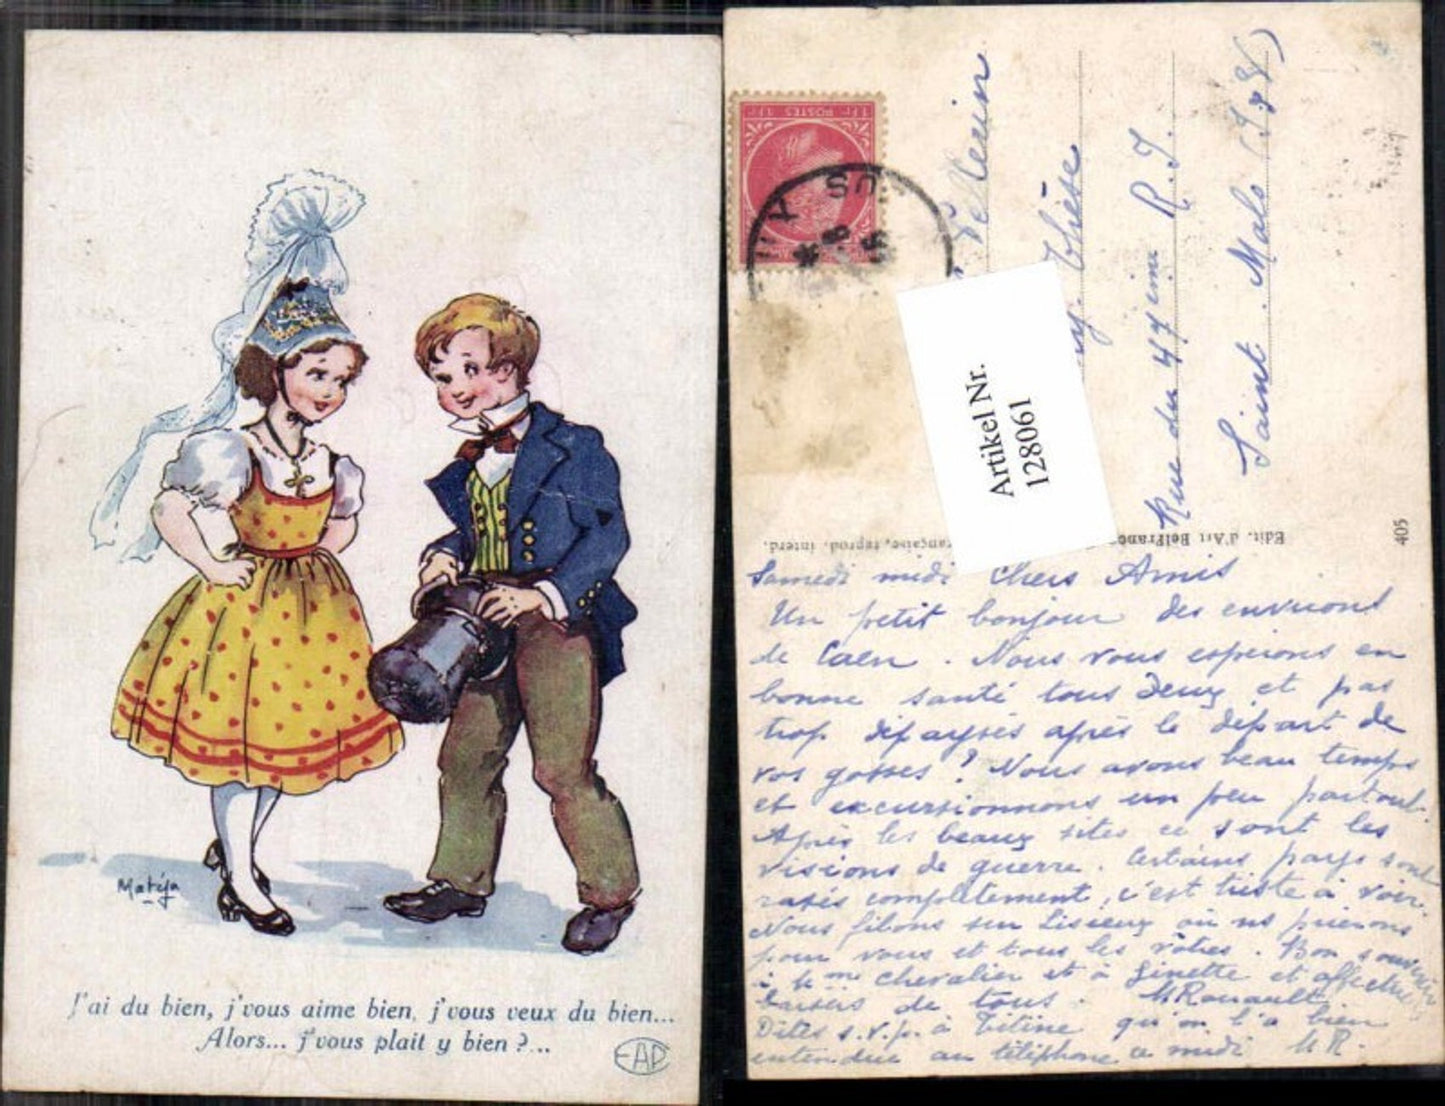 J'ai du bien, j'vous aime bien, j'vous veux du bien...
Alors... j'vous plait y bien ?...
Matéja
EAP
1 Fr POSTES 1 Fr
US
Pellerin
Thérèse
Rue du 47 eme R. I.
Saint Malo (I & V)
Artikel Nr.
128061
Edit. d'Art Belfranc
rançaise, reprod. interd.
405
Samedi midi Chers Amis
Un petit bonjour des environs
de Caen. Nous vous espérons en
bonne santé tous deux et pas
trop dépaysés après le départ de
vos gosses ? Nous avons beau temps
et excursionnons un peu partout.
Après les beaux sites ce sont les
visions de guerre. Certains pays sont
rasés complètement, c'est triste à voir.
Nous filons sur Lisieux où ns prierons
pour vous et tous les vôtres. Bon souvenir
à Mme Chevalier et à Ginette et affectueux
baisers de tous. M Rouault
Dites s.v.p. à Titine qu'on l'a bien
entendue au téléphone ce midi M R.